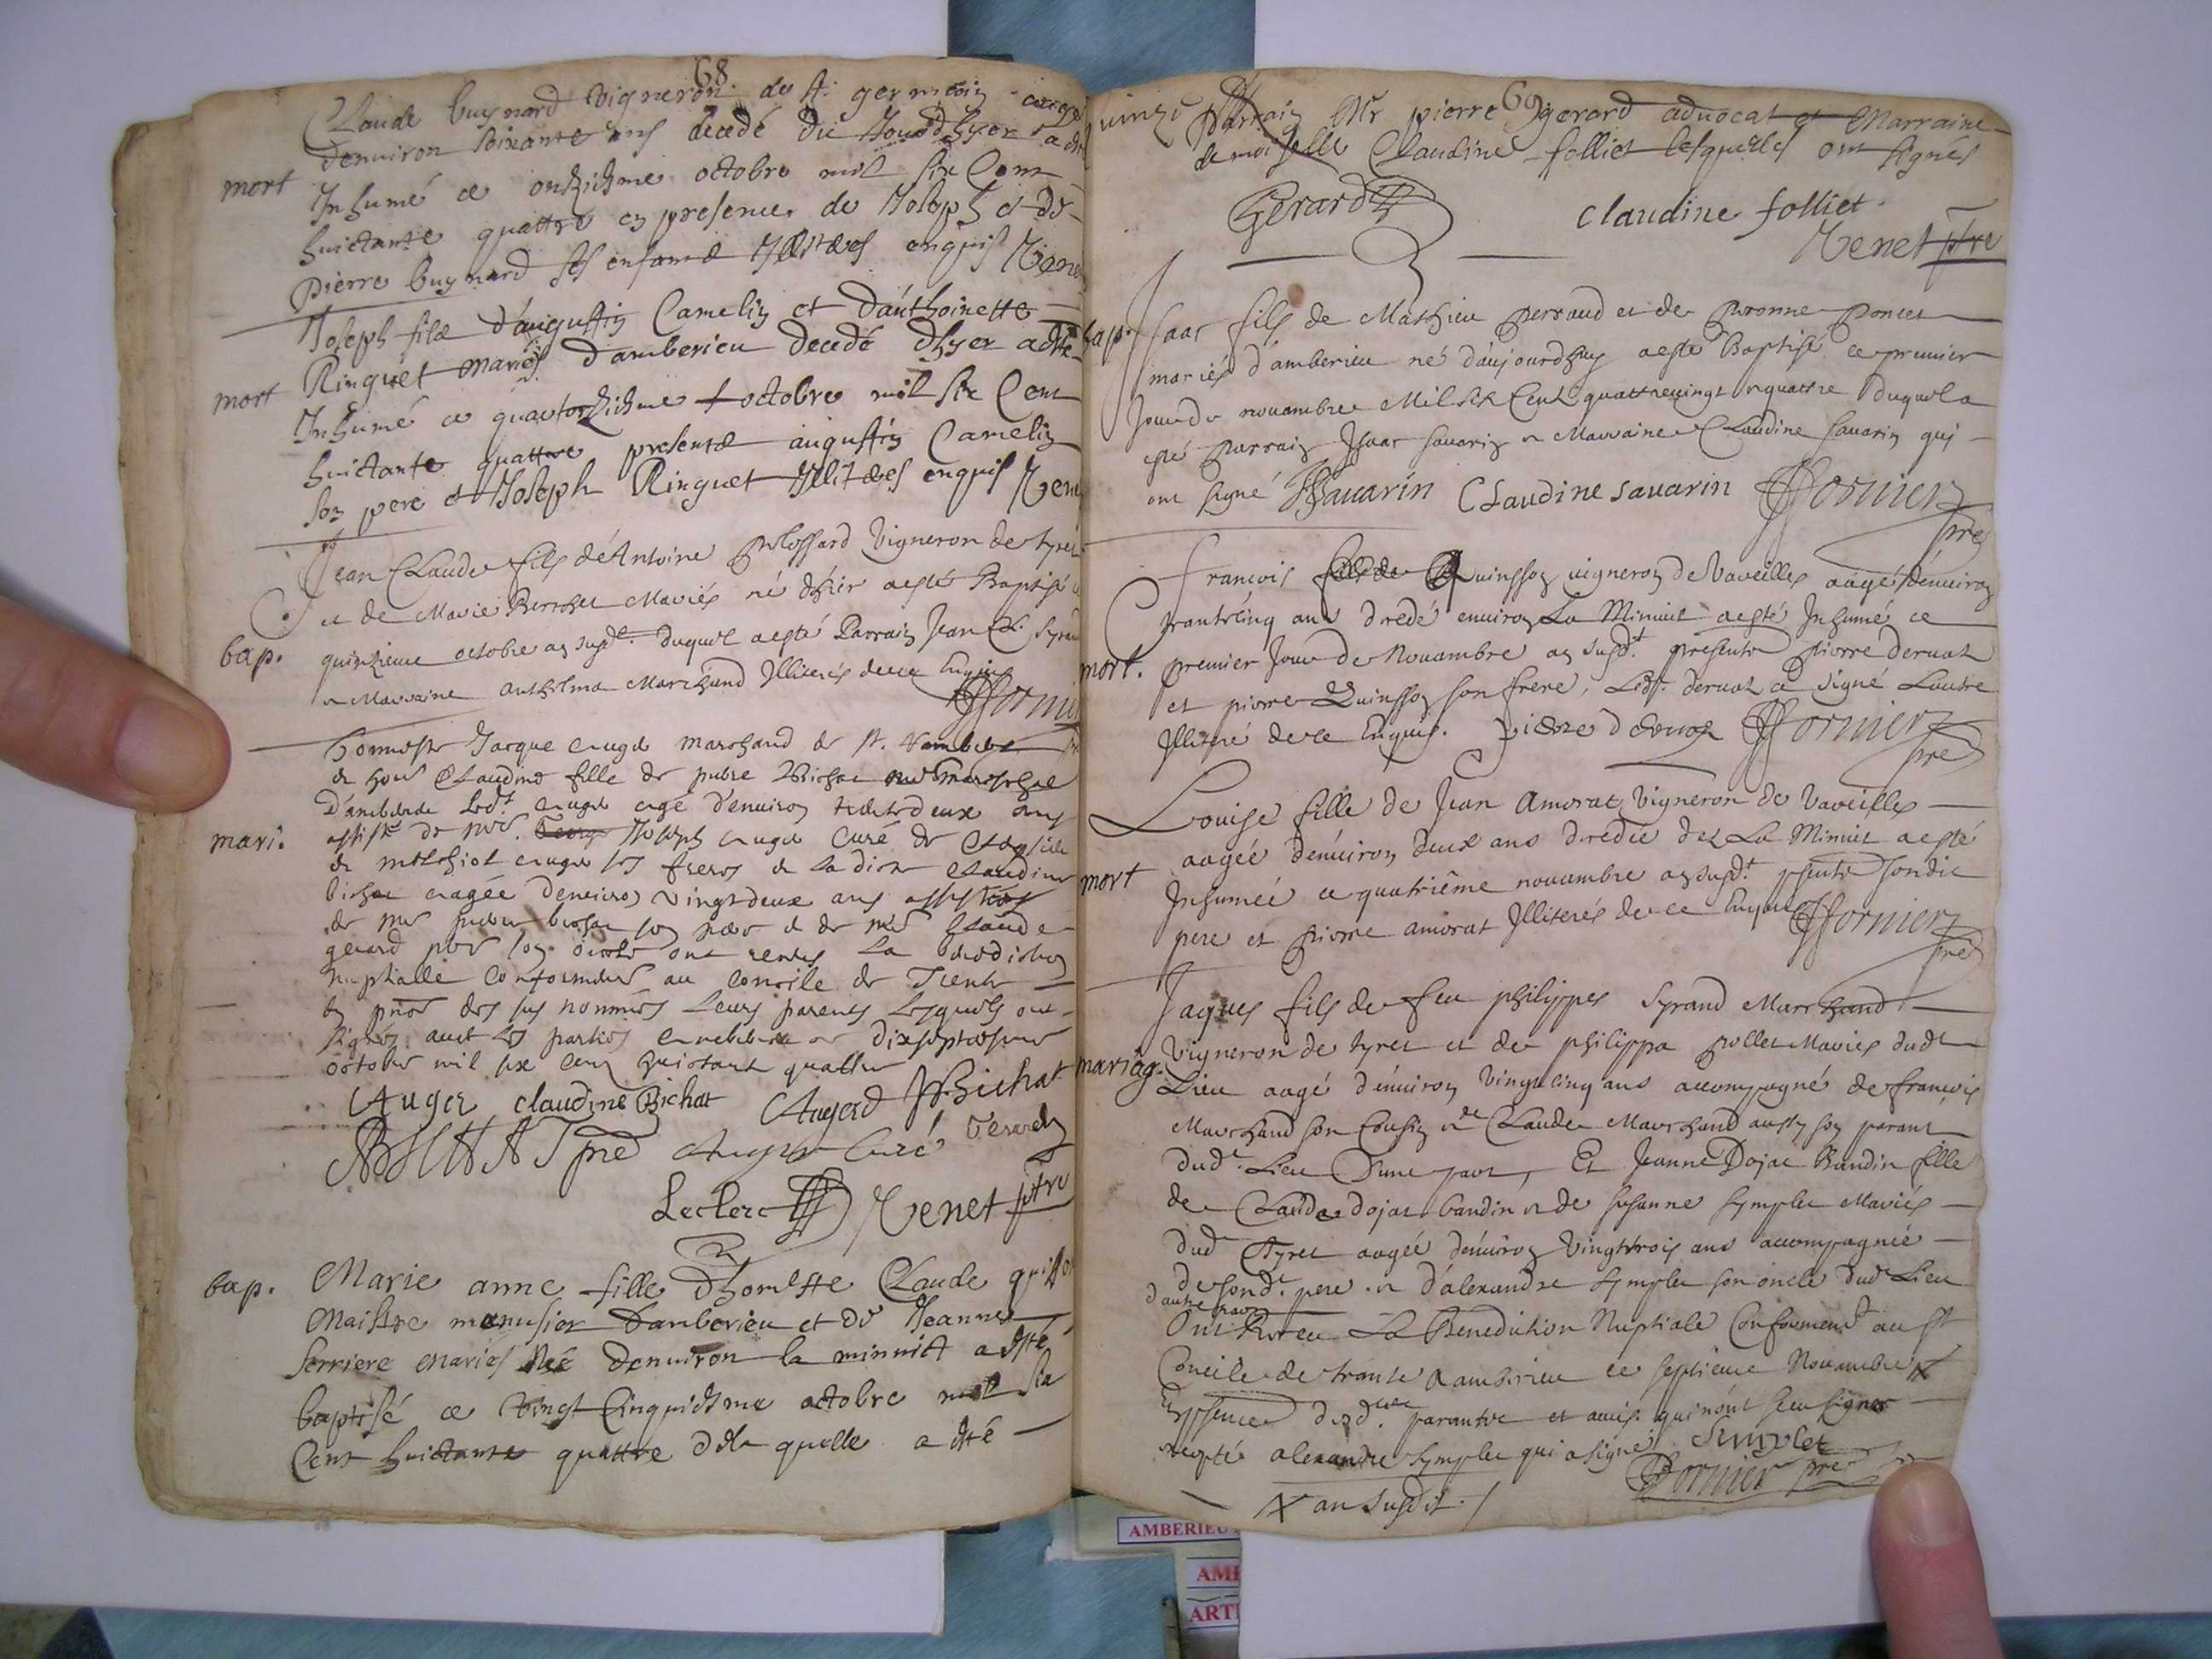 68
Claude buynard vigneron de st. germain aagé
denviron soixante ans decedé du Jourdhyer a esté
mort
Inhumé ce onziesme octobre mil six Cent
huictante quattre en presence de Joseph et de
pierre buynard ses enfans Illiterés enquis Tenet
Joseph filz d'augustin Camelin et d'anthoinette
Ringuet mariés d'amberieu decedé dhyer a esté
mort
Inhumé ce quatorziesme octobre mil six Cent
huictante quattre presentz augustin Camelin
son pere et Joseph Ringuet Illiterés enquis Tenet
Jean Claude fils de Antoine vigneron de tyret
et de Marie Berthet Mariés né d'hier a esté Baptisé ce
bap.
quinzieme octobre an susdt. duquel a esté Parrain Jean Cl. Syrand
et Marraine anthelma Marchand Illiterés de ce Enquis
Fornier
honneste Jacque auger marchand de st. Rambert
et hon. Claudine fille de Bichat
D'amberieu led.t auger agé d'enuiron trente deux ans
mari.
assisté de Joseph auger curé de
et melchiol auger ses freres et ladite Claudine
bichat aagée denuiron vingt deux ans assistée
de bichat son pere et de Claude
gerard son oncle ont receus la benediction
nuptialle Conformément au Concile de Trente
en pnce des sus nommés leurs parents lesquels ont
signés auec les parties a amberieu ce dixseptiesme
octobre mil six cent huictante quattre
Auger claudine Bichat Augerd Bichat
BICHAT pre Auger Curé Gerard
Leclerc Tenet ptre
bap.
Marie anne fille d'honneste Claude
Maistre menusier d'amberieu et de Jeanne
ferriere mariés Née denuiron la minuict a esté
baptisé ce vingt Cinquiesme octobre mil six
Cent huictante quattre de la quelle a esté
69
Parrain Mr pierre gerard aduocat et Marraine
demoiselle Claudine folliet lesquels ont signés
Gerard
claudine folliet
Tenet ptre
bap.
Isaac fils de Mathieu perraud et de peronne poncet
mariés d'amberieu né d'aujourdhuy a esté Baptisé ce premier
Jour de nouambre Mil six Cent quattreuingt et quattre duquel a
esté Parrain Isaac sauarin et Marraine Claudine sauarin qui
ont signé ISauarin Claudine sauarin Fornier
pre
francois Quinsson vigneron de Vareilles aagé d'enuiron
trante cinq ans decedé enuiron La Minuit a esté Inhumé ce
mort.
premier Jour de Nouambre an susd.t presents pierre deruat
et pierre Quinsson son frere, Led.t deruat a signé L'autre
Illiteré de ce Enquis. pierre deruat Fornier
pre
Louise fille de Jean Amorat Vigneron de Vareilles
aagée d'enuiron deux ans decedée dez La Minuit a esté
mort
Inhumée ce quatriême nouambre an susd.t psents sondit
pere et pierre amorat Illiterés de ce Enquis Fornier
pre
Jaques fils de feu philippes Syrand Marchand
Vigneron de tyret et de philippa pollet Mariés dudt
mariag.
Lieu aagé d'enuiron Vingt cinq ans accompagné de francois
Marchand son Cousin et de Claude Marchand aussy son parant
dud.t Lieu d'une part, Et Jeanne Dojat Baudin fille
de Claude dojat baudin et de susanne symplet Mariés
dud.t tyret aagée d'enuiron Vingt trois ans accompagnée
de sond.t pere et d'alexandre symplet son oncle dud.t Lieu
d'autre part
Ont Receu La Benediction Nuptiale Conformem.t au st
Concile de trante a amberieu ce septieme Nouambre X
En psence desd. parants et amis qui n'ont sceu signer
excepté alexandre symplet qui a signé. Simplet
Fornier pre
X an susdit.
AMBERIEU
AMB
ARTE